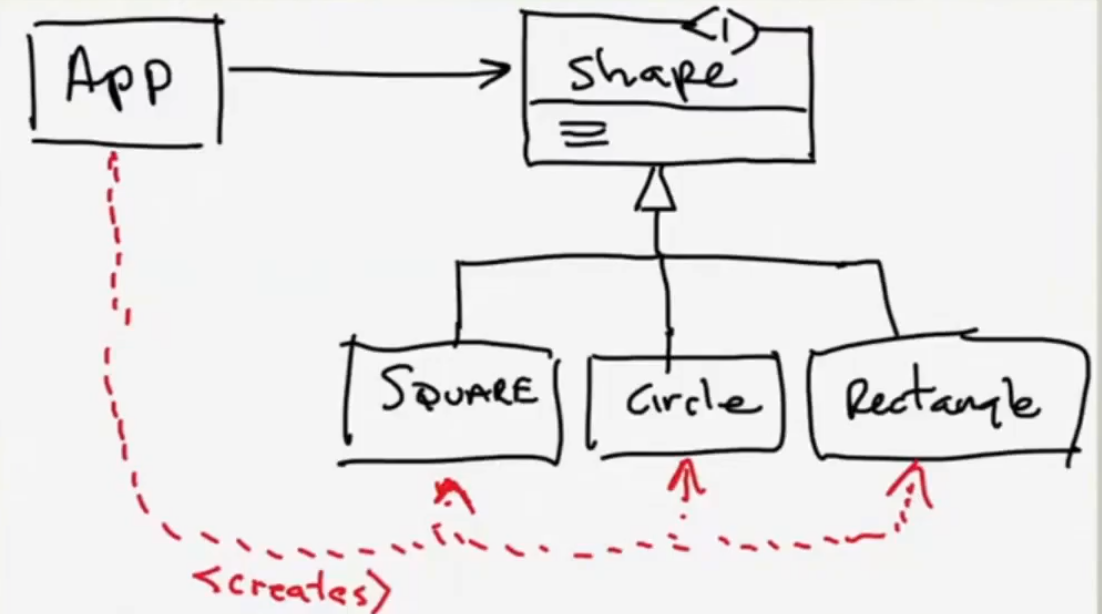 <I>
App
Shape
SQUARE
Circle
Rectangle
<creates>